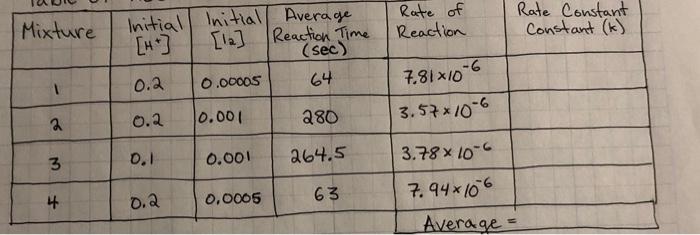 Mixture Initial [H⁺] Initial [I2] Average Reaction Time (sec) Rate of Reaction Rate Constant Constant (k)
1 0.2 0.00005 64 7.81 x 10⁻⁶
2 0.2 0.001 280 3.57 x 10⁻⁶
3 0.1 0.001 264.5 3.78 x 10⁻⁶
4 0.2 0.0005 63 7.94 x 10⁻⁶
Average =